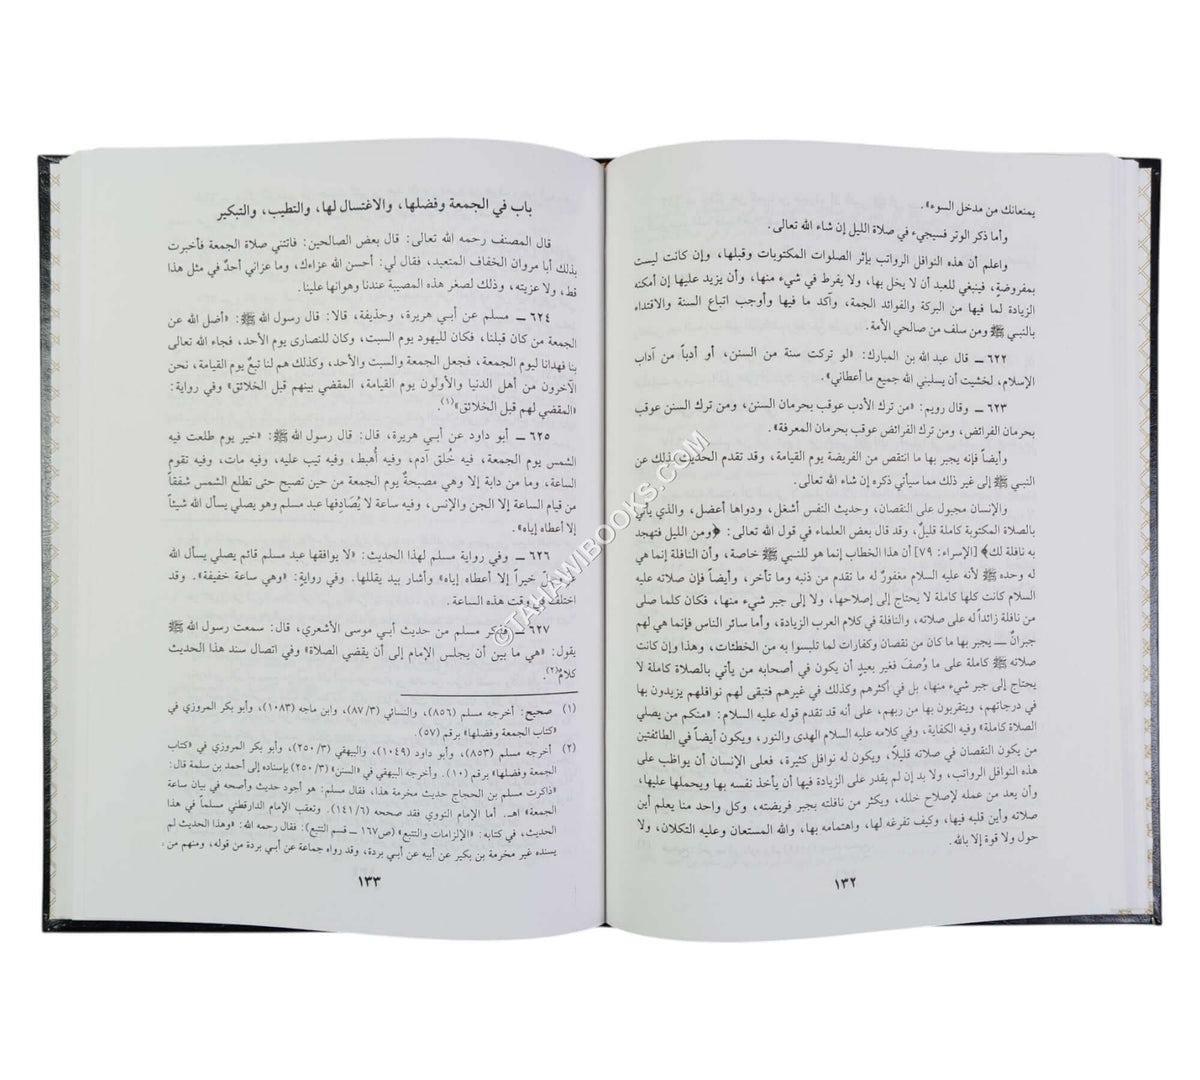 يمنعانك من مدخل السوء».
وأما ذكر الوتر فسيجيء في صلاة الليل إن شاء الله تعالى.
واعلم أن هذه النوافل الرواتب بإثر الصلوات المكتوبات وقبلها، وإن كانت ليست
بمفروضةٍ، فينبغي للعبد أن لا يخل بها، ولا يفرط في شيء منها، وأن يزيد عليها إن أمكنه
الزيادة لما فيها من البركة والفوائد الجمة، وآكد ما فيها وأوجب اتباع السنة والاقتداء
بالنبي ﷺ ومن سلف من صالحي الأمة.
٦٢٢ ــ قال عبد الله بن المبارك: «لو تركت سنة من السنن، أو أدباً من آداب
الإسلام، لخشيت أن يسلبني الله جميع ما أعطاني».
٦٢٣ ــ وقال رويم: «من ترك الأدب عوقب بحرمان السنن، ومن ترك السنن عوقب
بحرمان الفرائض، ومن ترك الفرائض عوقب بحرمان المعرفة».
وأيضاً فإنه يجبر بها ما انتقص من الفريضة يوم القيامة، وقد تقدم الحديث بذلك عن
النبي ﷺ إلى غير ذلك مما سيأتي ذكره إن شاء الله تعالى.
والإنسان مجبول على النقصان، وحديث النفس أشغل، ودواها أعضل، والذي يأتي
بالصلاة المكتوبة كاملة قليلٌ، وقد قال بعض العلماء في قول الله تعالى: ﴿ومن الليل فتهجد
به نافلة لك﴾ [الإسراء: ٧٩] أن هذا الخطاب إنما هو للنبي ﷺ خاصة، وأن النافلة إنما هي
له وحده ﷺ لأنه عليه السلام مغفورٌ له ما تقدم من ذنبه وما تأخر، وأيضاً فإن صلاته عليه
السلام كانت كلها كاملة لا يحتاج إلى إصلاحها، ولا إلى جبر شيء منها، فكان كلما صلى
من نافلة زائداً له على صلاته، والنافلة في كلام العرب الزيادة، وأما سائر الناس فإنما هي لهم
جبرانٌ ــ يجبر بها ما كان من نقصان وكفارات لما تلبسوا به من الخطئات، وهذا وإن كانت
صلاته ﷺ كاملة على ما وُصفَ فغير بعيدٍ أن يكون في أصحابه من يأتي بالصلاة كاملة لا
يحتاج إلى جبر شيء منها، بل في أكثرهم وكذلك في غيرهم فتبقى لهم نوافلهم يزيدون بها
في درجاتهم، ويتقربون بها من ربهم، على أنه قد تقدم قوله عليه السلام: «منكم من يصلي
الصلاة كاملة» وفيه الكفاية، وفي كلامه عليه السلام الهدى والنور، ويكون أيضاً في الطائفتين
من يكون النقصان في صلاته قليلاً، ويكون له نوافل كثيرة، فعلى الإنسان أن يواظب على
هذه النوافل الرواتب، ولا بد إن لم يقدر على الزيادة فيها أن يأخذ نفسه بها ويحملها عليها،
وأن يعد من عمله لإصلاح خلله، ويكثر من نافلته بجبر فريضته، وكل واحد منا يعلم أين
صلاته وأين قلبه فيها، وكيف تفرغه لها، واهتمامه بها، والله المستعان وعليه التكلان، ولا
حول ولا قوة إلا بالله.
١٣٢
باب في الجمعة وفضلها، والاغتسال لها، والتطيب، والتبكير
قال المصنف رحمه الله تعالى: قال بعض الصالحين: فاتتني صلاة الجمعة فأخبرت
بذلك أبا مروان الخفاف المتعبد، فقال لي: أحسن الله عزاءك، وما عزاني أحدٌ في مثل هذا
قط، ولا عزيته، وذلك لصغر هذه المصيبة عندنا وهوانها علينا.
٦٢٤ ــ مسلم عن أبي هريرة، وحذيفة، قالا: قال رسول الله ﷺ: «أضل الله عن
الجمعة من كان قبلنا، فكان لليهود يوم السبت، وكان للنصارى يوم الأحد، فجاء الله تعالى
بنا فهدانا ليوم الجمعة، فجعل الجمعة والسبت والأحد، وكذلك هم لنا تبعٌ يوم القيامة، نحن
الآخرون من أهل الدنيا والأولون يوم القيامة، المقضي بينهم قبل الخلائق» وفي رواية:
«المقضي لهم قبل الخلائق»(١).
٦٢٥ ــ أبو داود عن أبي هريرة، قال: قال رسول الله ﷺ: «خير يوم طلعت فيه
الشمس يوم الجمعة، فيه خُلق آدم، وفيه أُهبط، وفيه تيب عليه، وفيه مات، وفيه تقوم
الساعة، وما من دابة إلا وهي مصيخةٌ يوم الجمعة من حين تصبح حتى تطلع الشمس شفقاً
من قيام الساعة إلا الجن والإنس، وفيه ساعة لا يُصَادِفها عبد مسلم وهو يصلي يسأل الله شيئاً
إلا أعطاه إياه».
٦٢٦ ــ وفي رواية مسلم لهذا الحديث: «لا يوافقها عبد مسلم قائم يصلي يسأل الله
خيراً إلا أعطاه إياه» وأشار بيد يقللها. وفي روايةٍ: «وهي ساعة خفيفة». وقد
اختلف في وقت هذه الساعة.
٦٢٧ ــ فذكر مسلم من حديث أبي موسى الأشعري، قال: سمعت رسول الله ﷺ
يقول: «هي ما بين أن يجلس الإمام إلى أن يقضي الصلاة» وفي اتصال سند هذا الحديث
كلامٌ(٢).
(١) صحيح: أخرجه مسلم (٨٥٦)، والنسائي (٣/ ٨٧)، وابن ماجه (١٠٨٣)، وأبو بكر المروزي في
«كتاب الجمعة وفضلها» برقم (٥٧).
(٢) أخرجه مسلم (٨٥٣)، وأبو داود (١٠٤٩)، والبيهقي (٣/ ٢٥٠)، وأبو بكر المروزي في «كتاب
الجمعة وفضلها» برقم (١٠). وأخرجه البيهقي في «السنن» (٣/ ٢٥٠) بإسناده إلى أحمد بن سلمة قال:
«ذاكرت مسلم بن الحجاج حديث مخرمة هذا، فقال مسلم: هو أجود حديث وأصحه في بيان ساعة
الجمعة» اهـ. أما الإمام النووي فقد صححه (٦/ ١٤١). وتعقب الإمام الدارقطني مسلماً في هذا
الحديث، في كتابه: «الإلزامات والتتبع» (ص١٦٧ ــ قسم التتبع): فقال رحمه الله: «وهذا الحديث لم
يسنده غير مخرمة بن بكير عن أبيه عن أبي بردة، وقد رواه جماعة عن أبي بردة من قوله، ومنهم من
١٣٣
©TAHAWIBOOKS.COM